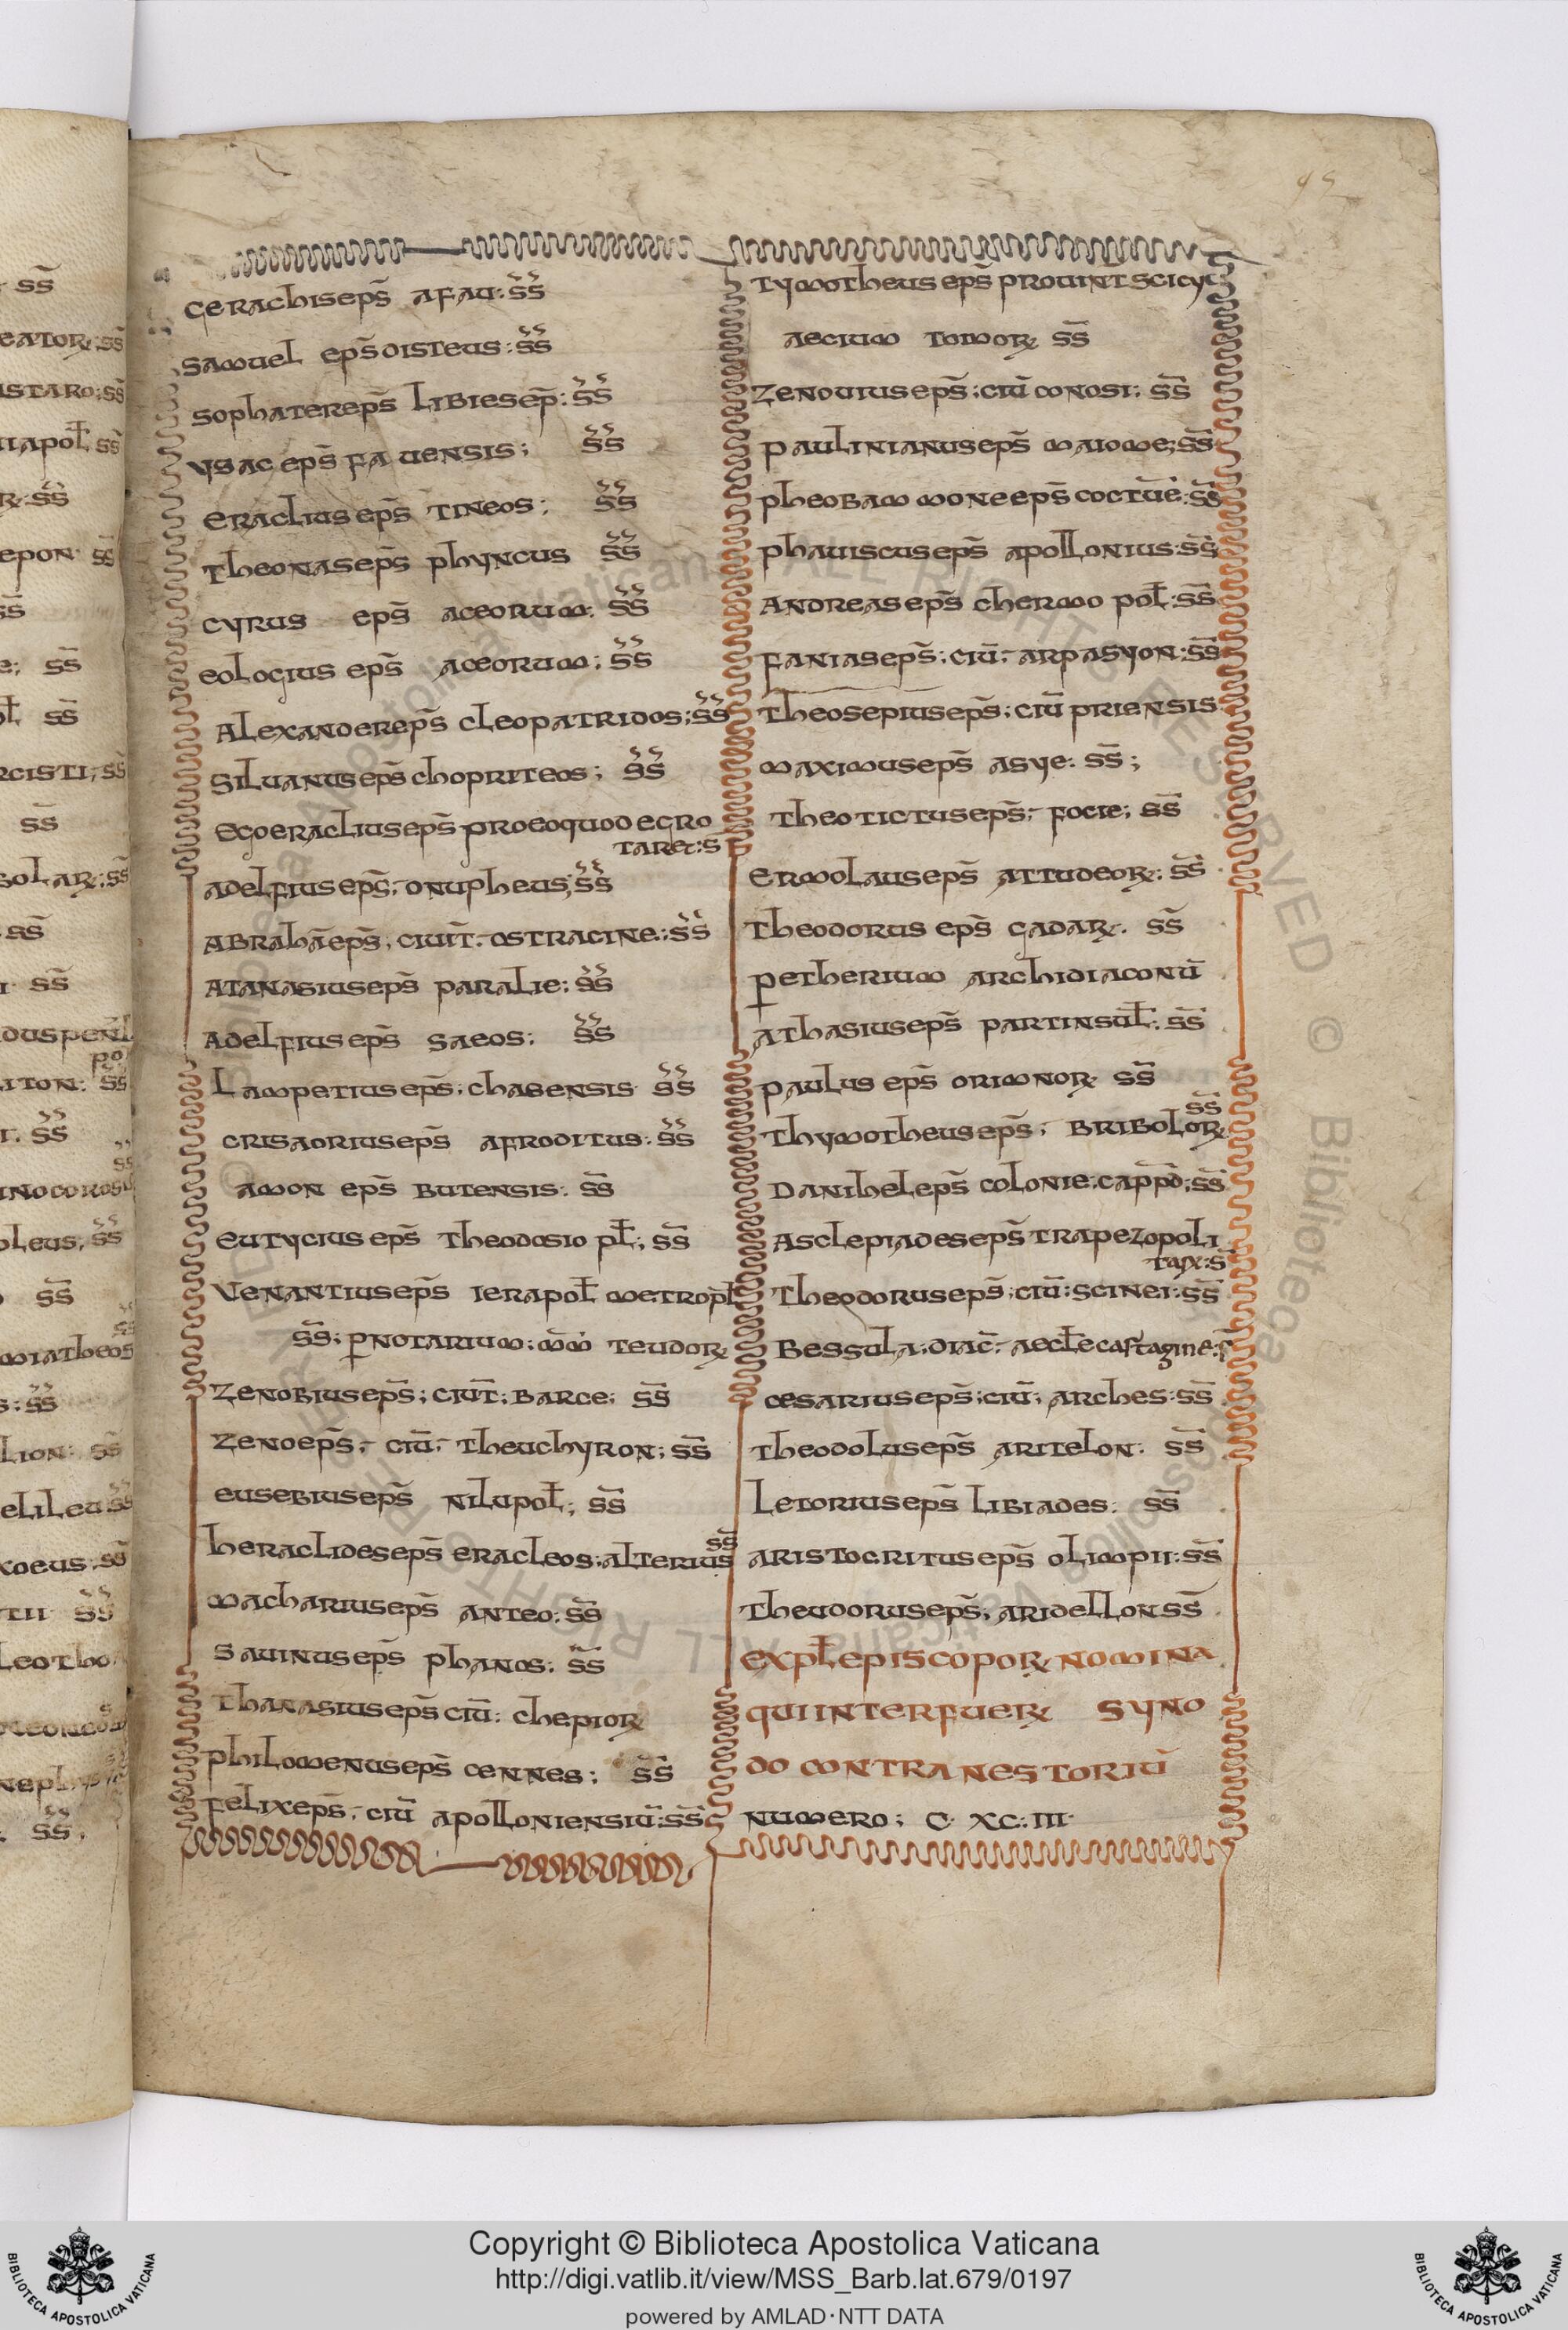 95
Gerachis ep̄s afau: s̄s̄
Samuel ep̄s disteus: s̄s̄
Sophater ep̄s libies ep̄: s̄s̄
Ysac ep̄s fauensis; s̄s̄
Eraclius ep̄s tineos; s̄s̄
Theonas ep̄s phyncus s̄s̄
Cyrus ep̄s aceorum: s̄s̄
Eologius ep̄s aceorum; s̄s̄
Alexander ep̄s cleopatridos; s̄s̄
Siluanus ep̄s chopriteos; s̄s̄
Ego eraclius ep̄s pro eo quod egro
taret: s̄
Adelfius ep̄s, onupheus; s̄s̄
Abrahā ep̄s, ciuit̄. ostracine: s̄s̄
Atanasius ep̄s paralie: s̄s̄
Adelfius ep̄s saeos: s̄s̄
Lampetius ep̄s; chasensis s̄s̄
Crisaorius ep̄s afroditus: s̄s̄
Amon ep̄s butensis: s̄s̄
Eutycius ep̄s theodosio pł; s̄s̄
Venantius ep̄s ierapoł metropł
s̄s̄; ꝑ notarium: m̄m̄ teudorꝝ
Zenobius ep̄s; ciut̄; barce; s̄s̄
Zeno ep̄s, ciū, theuchyron; s̄s̄
Eusebius ep̄s nilupoł; s̄s̄
Heraclides ep̄s eracleos; alterius s̄s̄
Macharius ep̄s anteo: s̄s̄
Sauinus ep̄s phanos: s̄s̄
Thanasius ep̄s ciū: chepiorꝝ
Philomenus ep̄s cennes; s̄s̄
Felix ep̄s, ciū apolloniensiū: s̄s̄
Tymotheus ep̄s prouint scicyt
aecium tomorꝝ s̄s̄
Zenouius ep̄s; ciū conosi; s̄s̄
Paulinianus ep̄s maiome; s̄s̄
Pheobammone ep̄s coctūe: s̄s̄
Phauiscus ep̄s apollonius: s̄s̄
Andreas ep̄s chermo poł: s̄s̄
Fanias ep̄s; ciū, arpasyon: s̄s̄
Theosepius ep̄s; ciū priensis
Maximus ep̄s asye: s̄s̄;
Theotictus ep̄s, focie; s̄s̄
Ermolaus ep̄s attudeorꝝ: s̄s̄
Theodorus ep̄s gadarꝝ. s̄s̄
ꝑetherium archidiaconū
Athasius ep̄s partinsuł: s̄s̄
Paulus ep̄s orimnorꝝ s̄s̄
Thymotheus ep̄s, bribolorꝝ s̄s̄
Danihel ep̄s colonie; cap̄p̄d; s̄s̄
Asclepiades ep̄s trapezopoli
tarꝝ: s̄
Theodorus ep̄s; ciū: scinei: s̄s̄
Bessula; diac̄, aecłe cartagine: s̄
Cesarius ep̄s; ciū; arches: s̄s̄
Theodolus ep̄s aritelon: s̄s̄
Letorius ep̄s libiades: s̄s̄
Aristocritus ep̄s olimpii: s̄s̄
Theudorus ep̄s; aridellon s̄s̄
Expł episcoporꝝ nomina
qui interfuerꝝ syno
do contra nestoriū
numero; C XC: III
Copyright © Biblioteca Apostolica Vaticana
http://digi.vatlib.it/view/MSS_Barb.lat.679/0197
powered by AMLAD · NTT DATA